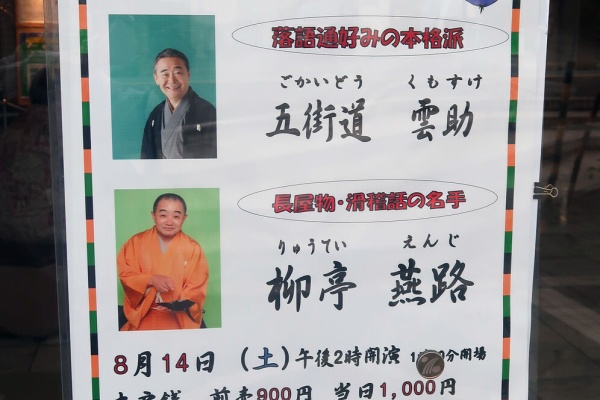 落語通好みの本格派
ごかいどう くもすけ
五街道 雲助
長屋物・滑稽話の名手
りゅうてい えんじ
柳亭 燕路
8月14日 (土) 午後2時開演 分開場
前売900円 当日1,000円